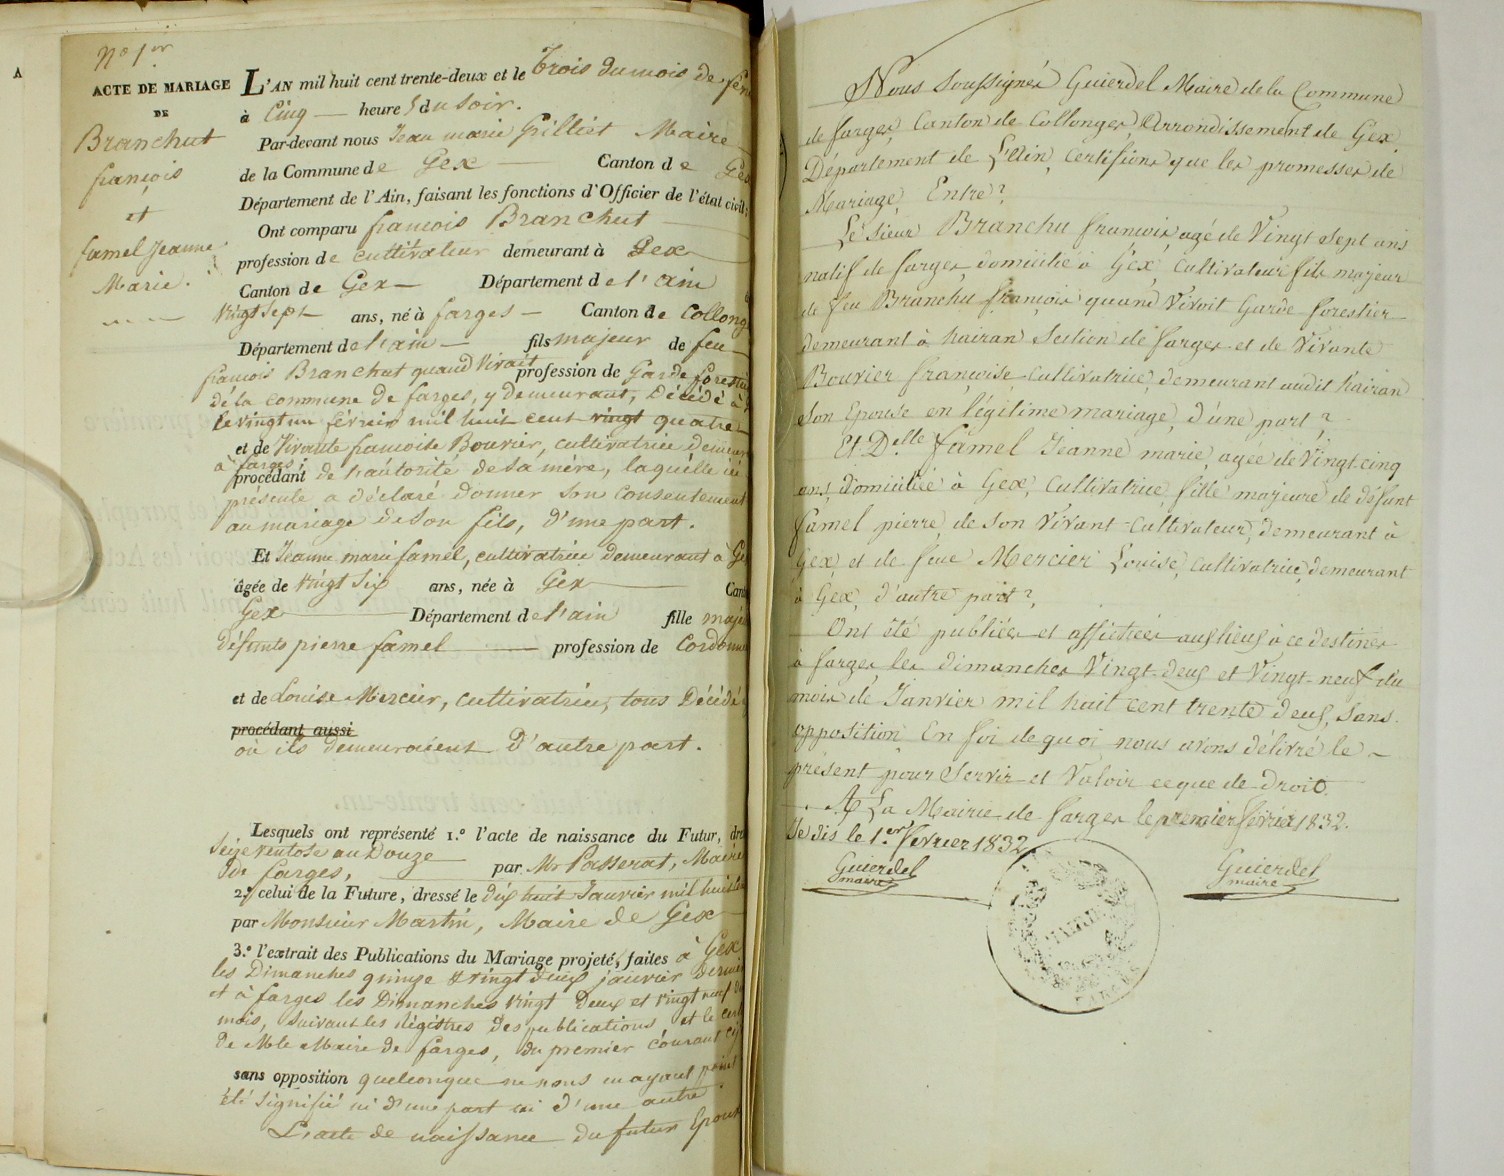 A
N° 1er
ACTE DE MARIAGE
DE
Branchut
françois
et
famel Jeanne
Marie.
L'AN mil huit cent trente-deux et le trois du mois de fév
à Cinq heures du soir.
Par-devant nous Jean marie Gilliet Maire
de la Commune de Gex Canton de Gex
Département de l'Ain, faisant les fonctions d'Officier de l'état civil;
Ont comparu françois Branchut
profession de cultivateur demeurant à Gex
Canton de Gex Département de l'ain
vingt sept ans, né à farges Canton de Collong
Département de l'ain fils majeur de feu
françois Branchut quand vivait profession de Garde forestier
de la commune de farges, y demeurant, Décédé à
le vingt un février mil huit cent vingt quatre
et de vivante françoise Bouvier, cultivatrice demeur
à farges,
procédant de l'autorité de sa mère, laquelle ici
présente a déclaré donner son consentement
au mariage de son fils, d'une part.
Et Jeanne marie famel, cultivatrice demeurant à Gex
âgée de vingt six ans, née à Gex Cant
Gex Département de l'ain fille maje
défunts pierre famel profession de Cordonn
et de Louise Mercier, cultivatrice, tous Décédé
procédant aussi
où ils demeuraient D'autre part.
Lesquels ont représenté 1.° l'acte de naissance du Futur, dre
seize ventose an Douze par Mr Passerat, Maire
de farges,
2.° celui de la Future, dressé le dix huit Janvier mil huit cen
par Monsieur Martin, Maire de Gex
3.° l'extrait des Publications du Mariage projeté, faites à Gex
les Dimanches quinze & vingt deux janvier dernier
et à farges les Dimanches vingt Deux et vingt neuf du
mois, suivant les Régistres des publications et le cert
de Mr le Maire de farges, du premier courant
sans opposition quelconque ne nous en ayant point
été signifié ni d'une part ni d'une autre.
L'acte de naissance du futur Epoux
Nous Soussignés Guierdel Maire de la Commune
de farges Canton de Collonges Arrondissement de Gex
Département de L'Ain, Certifions que les promesses de
Mariage Entre?
Le Sieur Branchu francois agé de Vingt Sept ans
natif de farges domicilié à Gex Cultivateur fils majeur
de feu Branchu françois quand Vivoit Garde forestier
demeurant à hairan Section de farges et de Vivante
Bouvier françoise Cultivatrice demeurant audit hairan
Son Epouse en légitime mariage, d'une part?
Et Delle famel Jeanne marie agée de Vingt-cinq
ans, domiciliée à Gex, Cultivatrice fille majeure de défunt
famel pierre de son Vivant Cultivateur, demeurant à
Gex et de feue Mercier Louise, Cultivatrice, demeurant
à Gex, d'autre part?,
Ont été publiées et affichées aux lieux à ce destinés
à farges les dimanches Vingt-deux et Vingt-neuf du
mois de Janvier mil huit cent trente deux, Sans
opposition En foi de quoi nous avons délivré le
présent pour Servir et Valoir ce que de droit.
A La Mairie de farges le premier février 1832.
Je dis le 1er février 1832
Guierdel
maire
Guierdel
maire
MAIRIE
FARGES